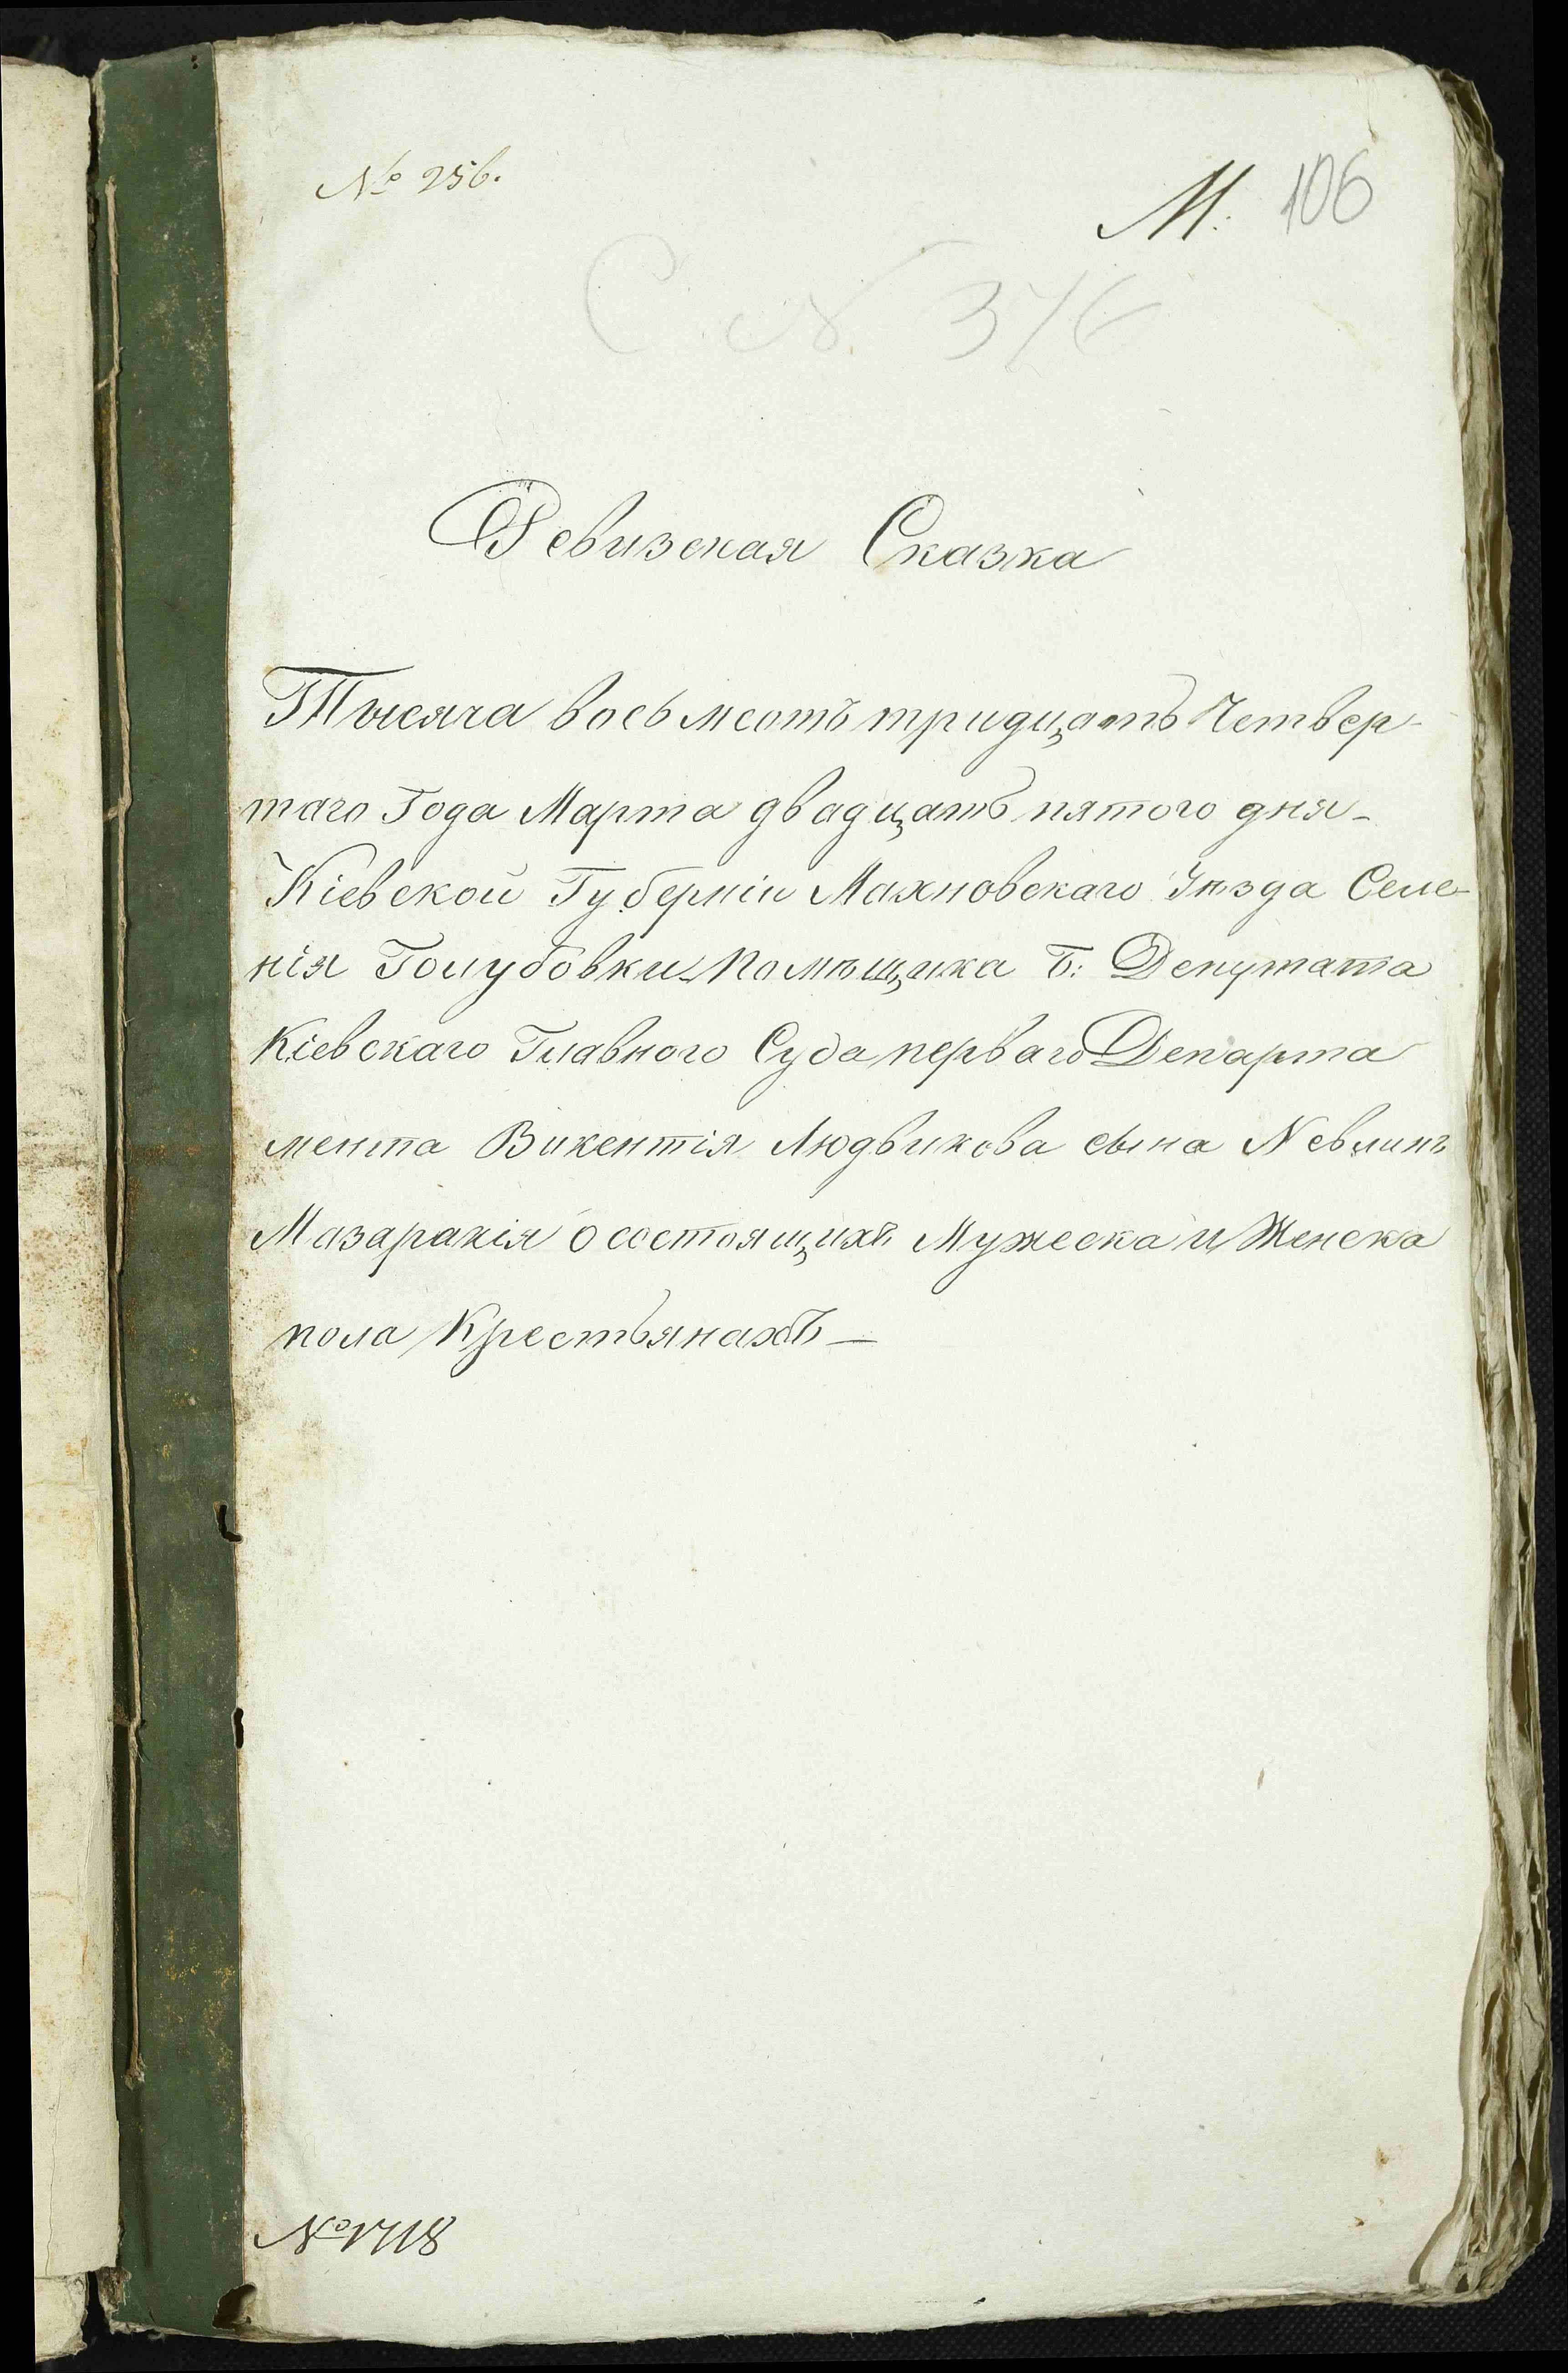 № 256.
М: 106
С. N 376
Ревизская Сказка
Тысяча восьмсотъ тридцать Четвер-
таго Года Марта двадцать пятого дня -
Кіевской Губерніи Махновскаго Уѣзда Селе-
нія Голубовки Помѣщика Б: Депутата
Кіевскаго Главного Суда перваго Департа
мента Викентія Людвикова сына
Мазаракія о состоящихъ Мужеска и Женска
пола Крестьянахъ —
№ 1718